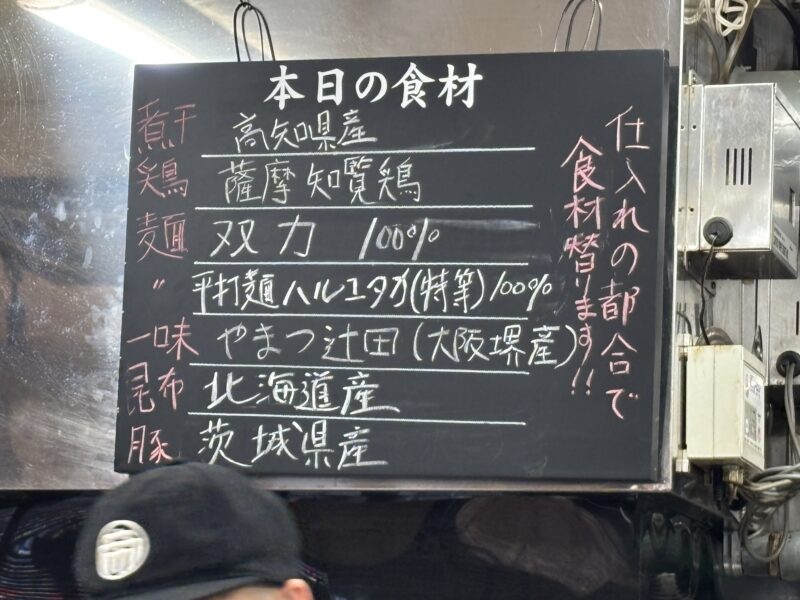 本日の食材
煮干 高知県産
鶏 薩摩知覧鶏
麺 双力 100%
〃 平打麺ハルユタカ(特等)100%
一味 やまつ辻田(大阪堺産)
昆布 北海道産
豚 茨城県産
仕入れの都合で
食材替ります!!